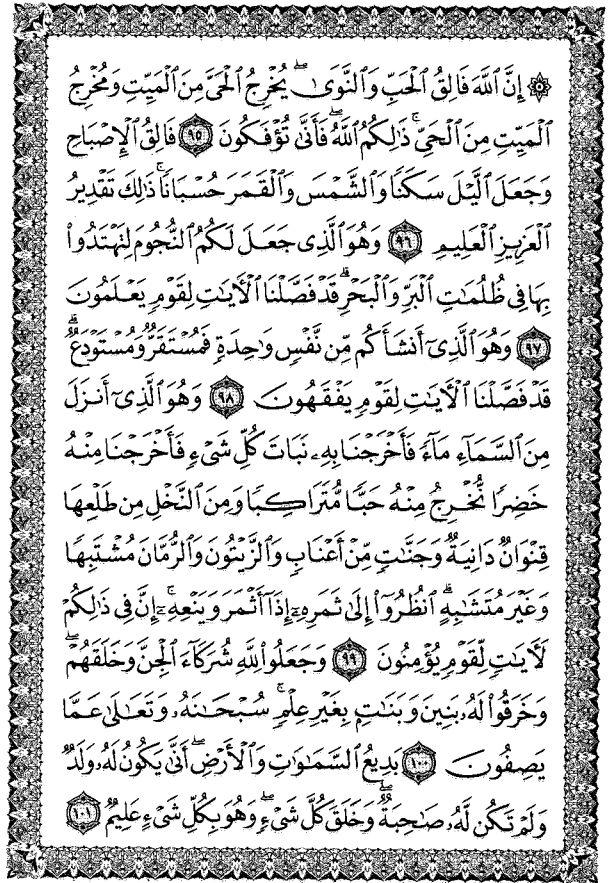 ۞ إِنَّ ٱللَّهَ فَالِقُ ٱلْحَبِّ وَٱلنَّوَىٰۖ يُخْرِجُ ٱلْحَىَّ مِنَ ٱلْمَيِّتِ وَمُخْرِجُ
ٱلْمَيِّتِ مِنَ ٱلْحَىِّۚ ذَٰلِكُمُ ٱللَّهُۖ فَأَنَّىٰ تُؤْفَكُونَ ٩٥ فَالِقُ ٱلْإِصْبَاحِ
وَجَعَلَ ٱلَّيْلَ سَكَنًا وَٱلشَّمْسَ وَٱلْقَمَرَ حُسْبَانًاۚ ذَٰلِكَ تَقْدِيرُ
ٱلْعَزِيزِ ٱلْعَلِيمِ ٩٦ وَهُوَ ٱلَّذِى جَعَلَ لَكُمُ ٱلنُّجُومَ لِتَهْتَدُوا۟
بِهَا فِى ظُلُمَٰتِ ٱلْبَرِّ وَٱلْبَحْرِۗ قَدْ فَصَّلْنَا ٱلْءَايَٰتِ لِقَوْمٍ يَعْلَمُونَ
٩٧ وَهُوَ ٱلَّذِىٓ أَنشَأَكُم مِّن نَّفْسٍ وَٰحِدَةٍ فَمُسْتَقَرٌّ وَمُسْتَوْدَعٌۗ
قَدْ فَصَّلْنَا ٱلْءَايَٰتِ لِقَوْمٍ يَفْقَهُونَ ٩٨ وَهُوَ ٱلَّذِىٓ أَنزَلَ
مِنَ ٱلسَّمَآءِ مَآءً فَأَخْرَجْنَا بِهِۦ نَبَاتَ كُلِّ شَىْءٍ فَأَخْرَجْنَا مِنْهُ
خَضِرًا نُّخْرِجُ مِنْهُ حَبًّا مُّتَرَاكِبًا وَمِنَ ٱلنَّخْلِ مِن طَلْعِهَا
قِنْوَانٌ دَانِيَةٌ وَجَنَّٰتٍ مِّنْ أَعْنَابٍ وَٱلزَّيْتُونَ وَٱلرُّمَّانَ مُشْتَبِهًا
وَغَيْرَ مُتَشَٰبِهٍۗ ٱنظُرُوٓا۟ إِلَىٰ ثَمَرِهِۦٓ إِذَآ أَثْمَرَ وَيَنْعِهِۦٓۚ إِنَّ فِى ذَٰلِكُمْ
لَءَايَٰتٍ لِّقَوْمٍ يُؤْمِنُونَ ٩٩ وَجَعَلُوا۟ لِلَّهِ شُرَكَآءَ ٱلْجِنَّ وَخَلَقَهُمْۖ
وَخَرَقُوا۟ لَهُۥ بَنِينَ وَبَنَٰتٍۭ بِغَيْرِ عِلْمٍۚ سُبْحَٰنَهُۥ وَتَعَٰلَىٰ عَمَّا
يَصِفُونَ ١٠٠ بَدِيعُ ٱلسَّمَٰوَٰتِ وَٱلْأَرْضِۖ أَنَّىٰ يَكُونُ لَهُۥ وَلَدٌ
وَلَمْ تَكُن لَّهُۥ صَٰحِبَةٌۖ وَخَلَقَ كُلَّ شَىْءٍۖ وَهُوَ بِكُلِّ شَىْءٍ عَلِيمٌ ١٠١